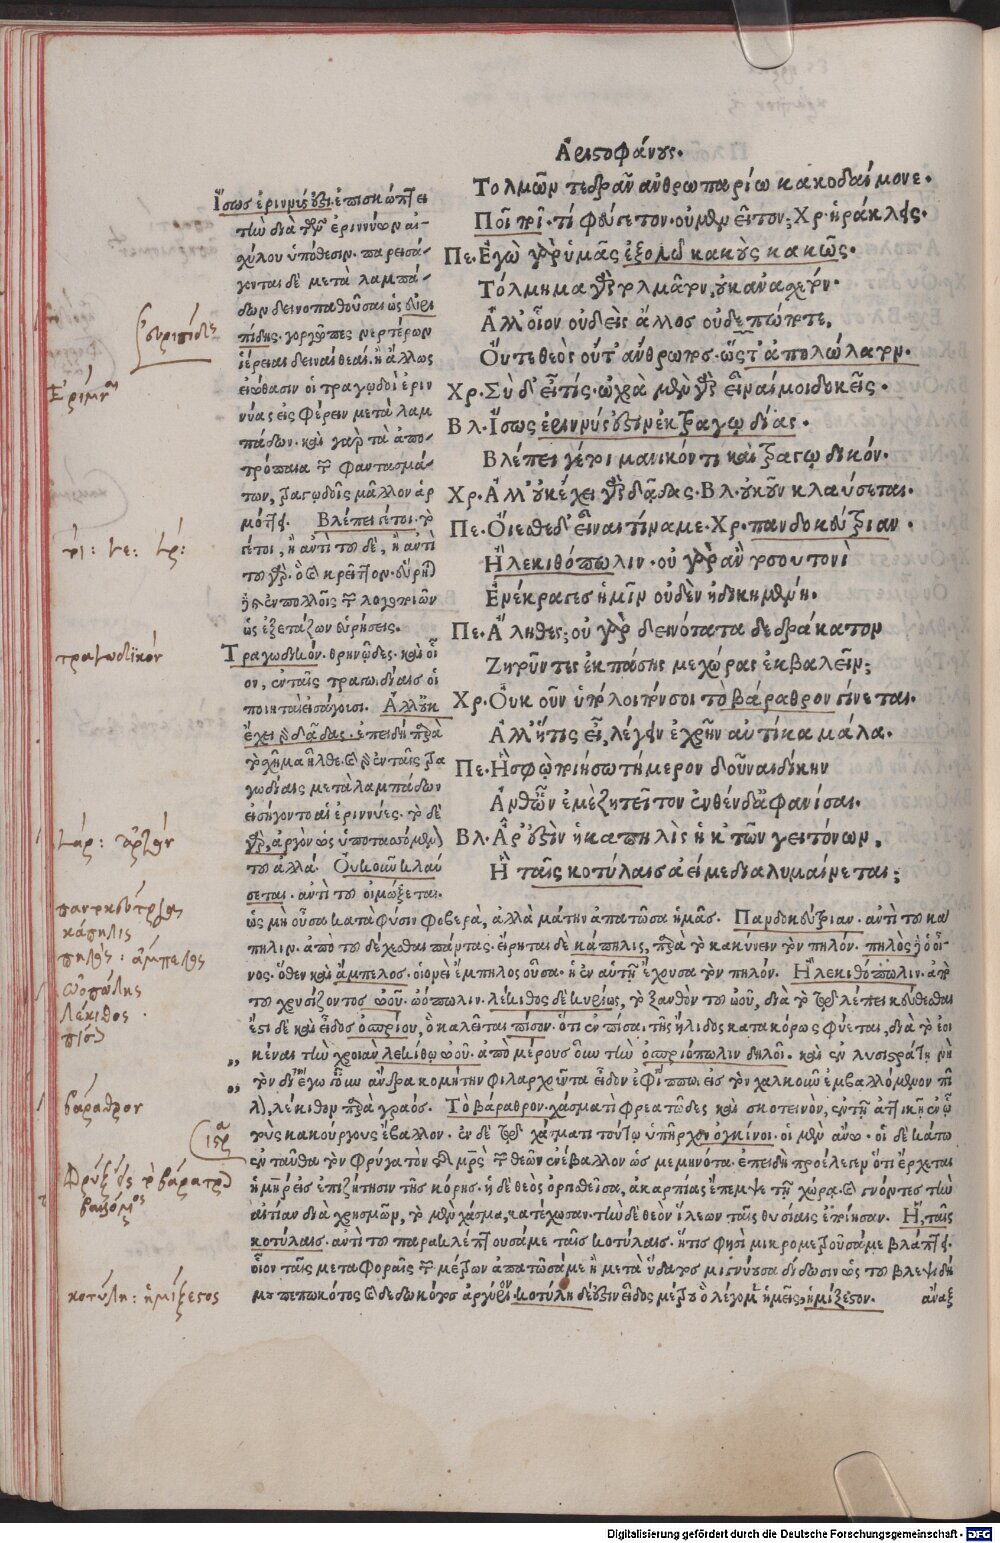 Ἀριστοφάνους.
Τολμῶν τε δρᾶν ἀνθρωπαρίω κακοδαίμονε.
Ποῖ ποῖ· τί φεύγετον· οὐ μενεῖτον; Χρ. ἡράκλεις.
Πε. Ἐγὼ γὰρ ὑμᾶς ἐξολῶ κακοὺς κακῶς.
Τόλμημα γὰρ τολμᾶτον, οὐκ ἀνασχετόν.
Ἀλλ' οἷον οὐδεὶς ἄλλος οὐδεπώποτε,
Οὔτε θεὸς οὔτ' ἄνθρωπος. ὥστ' ἀπολώλατον.
Χρ. Σὺ δ' εἶ τίς· ὠχρὰ μὲν γὰρ εἶναί μοι δοκεῖς.
Βλ. Ἴσως ἐριννύς ἐστιν ἐκ τραγῳδίας.
Βλέπει γέ τοι μανικόν τι καὶ τραγῳδικόν.
Χρ. Ἀλλ' οὐκ ἔχει γὰρ δᾷδας. Βλ. οὐκοῦν κλαύσεται.
Πε. Οἴεσθε δ' εἶναι τίνα με. Χρ. πανδοκεύτριαν.
Ἢ λεκιθόπωλιν· οὐ γὰρ ἂν τοσουτονὶ
Ἐνέκραγες ἡμῖν οὐδὲν ἠδικημένη.
Πε. Ἄληθες; οὐ γὰρ δεινότατα δεδράκατον
Ζητοῦντες ἐκ πάσης με χώρας ἐκβαλεῖν;
Χρ. Οὔκουν ὑπόλοιπόν σοι τὸ βάραθρον γίνεται.
Ἀλλ' ἥτις εἶ, λέγειν ἐχρῆν αὐτίκα μάλα.
Πε. Ἣ σφὼ ποιήσω τήμερον δοῦναι δίκην
Ἀνθ' ὧν ἐμὲ ζητεῖτον ἐνθένδ' ἀφανίσαι.
Βλ. Ἆρ' ἐστὶν ἡ καπηλὶς ἡ 'κ τῶν γειτόνων,
Ἢ ταῖς κοτύλαις ἀεί με διαλυμαίνεται;
Ἴσως ἐριννύς ἐστι. ἐπισκώπτει
τὴν διὰ τῶν ἐριννύων αἰ-
χύλου ὑπόθεσιν. παρεισά-
γονται δὲ μετὰ λαμπά-
δων δεινοπαθοῦσαι ὡς εὐρι
πίδης. γοργῶπες νερτέρων
ἱέρειαι δειναὶ θεαί. ἢ ἄλλως
εἰώθασιν οἱ τραγῳδοὶ ἐριν
νύας εἰσφέρειν μετὰ λαμ
πάδων. καὶ γὰρ τὰ ἀπο-
τρόπαια τῶν φαντασμά-
των, τραγῳδοῖς μᾶλλον ἁρ
μόττει. Βλέπει γέ τοι. τὸ
γέτοι, ἢ ἀντὶ τοῦ δὲ, ἢ ἀντὶ
τοῦ γὰρ. ὃ καὶ κρεῖττον. εὕρηται
ἐν πολλοῖς τῶν λογοποιῶν
ὡς ἐξετάζων εὑρήσεις.
Τραγῳδικόν. θρηνῶδες. καὶ οἷ
ον, ἐν ταῖς τραγῳδίαις οἱ
ποιηταὶ εἰσάγουσι. Ἀλλ' οὐκ
ἔχει γὰρ δᾷδας. ἐπειδὴ παρὰ
τὸ σχῆμα ἦλθε. καὶ γὰρ ἐν ταῖς τρα
γῳδίαις μετὰ λαμπάδων
εἰσήγοντο αἱ ἐριννύες. τὸ δὲ
γὰρ, ἀργὸν ὡς ὑποτασσόμενον
τοῦ ἀλλά. Οὐκοῦν κλαύ
σεται. ἀντὶ τοῦ οἰμώξεται.
ὡς μὴ οὖσα κατὰ φύσιν φοβερὰ, ἀλλὰ μάτην ἀπατῶσα ἡμᾶς. Πανδοκεύτριαν. ἀντὶ τοῦ κα
πηλιν. ἀπὸ τοῦ δέχεσθαι πάντας. εἴρηται δὲ κάπηλις, παρὰ τὸ κακύνειν τὸν πηλόν. πηλὸς γὰρ ὁ οἶ-
νος. ὅθεν καὶ ἄμπελος. οἱονεὶ ἔμπηλος οὖσα. ἡ ἐν αὑτῇ ἔχουσα τὸν πηλόν. Ἢ λεκιθόπωλιν. ἀπὸ
τοῦ χρυσίζοντος ὠοῦ. ὠόπωλιν. λέκιθος δὲ κυρίως, τὸ ξανθὸν τοῦ ὠοῦ, διὰ τὸ τῷ λέπει κεύθεσθαι
ἔστι δὲ καὶ εἶδος ὀσπρίου, ὃ καλεῖται πίσον. ὅτι ἐν πίσα τῆς ἤλιδος κατακόρως φύεται, διὰ τὸ ἐοι
κέναι τὴν χροιὰν λεκίθῳ ὠοῦ. ἀπὸ μέρους οὖν τὴν ὀσπριόπωλιν δηλοῖ. καὶ ἐν λυσιστράτῃ νὴ
τὸν δί' ἔγωγ' οὖν ἄνδρα κομήτην φιλαρχοῦντα εἶδον ἐφ' ἵππου εἰς τὸν χαλκοῦν ἐμβαλλόμενον πῖ
λον, λέκιθον παρὰ γραός. Τὸ βάραθρον. χάσμα τι φρεατῶδες καὶ σκοτεινὸν, ἐν τῇ ἀττικῇ ἐν ᾧ
τοὺς κακούργους ἔβαλλον. ἐν δὲ τῷ χάσματι τούτῳ ὑπῆρχον ὀγκίνοι. οἱ μὲν ἄνω. οἱ δὲ κάτω
ἐνταῦθα τὸν φρύγα τὸν τῆς μητρὸς τῶν θεῶν ἐνέβαλλον ὡς μεμηνότα. ἐπειδὴ προέλεγεν ὅτι ἔρχεται
ἡ μήτηρ εἰς ἐπιζήτησιν τῆς κόρης. ἡ δὲ θεὸς ὀργισθεῖσα, ἀκαρπίας ἔπεμψε τῇ χώρᾳ. καὶ γνόντες τὴν
αἰτίαν διὰ χρησμῶν, τὸ μὲν χάσμα, κατέχωσαν. τὴν δὲ θεὸν ἵλεων ταῖς θυσίαις ἐποίησαν. Ἢ ταῖς
κοτύλαις. ἀντὶ τοῦ παρακλέπτουσά με ταῖς κοτύλαις. ἥτις φησὶ μικρομετροῦσά με βλάπτει.
οἷον ταῖς μεταφοραῖς τῶν μέτρων ἀπατῶσά με ἢ μετὰ ὕδατος μιγνύουσα δίδωσιν ὡς τοῦ βλεψιδή
μου πεπωκότος καὶ δεδωκότος ἀργύριον. κοτύλη δέ ἐστιν εἶδος μέτρου ὃ λέγομεν ἡμεῖς, ἡμίξεστον.
ἄναξ
εὐριπίδης
Ἐρίννυες
τοι: γε: γάρ:
τραγωδικόν
γάρ: ἀργόν
πανδοκεύτρια
κάπηλις
πηλὸς: ἄμπελος
ὠοπώλης
λέκιθος.
πίσον
βάραθρον
κοτύλη: ἡμίξεστος
Digitalisierung gefördert durch die Deutsche Forschungsgemeinschaft - DFG